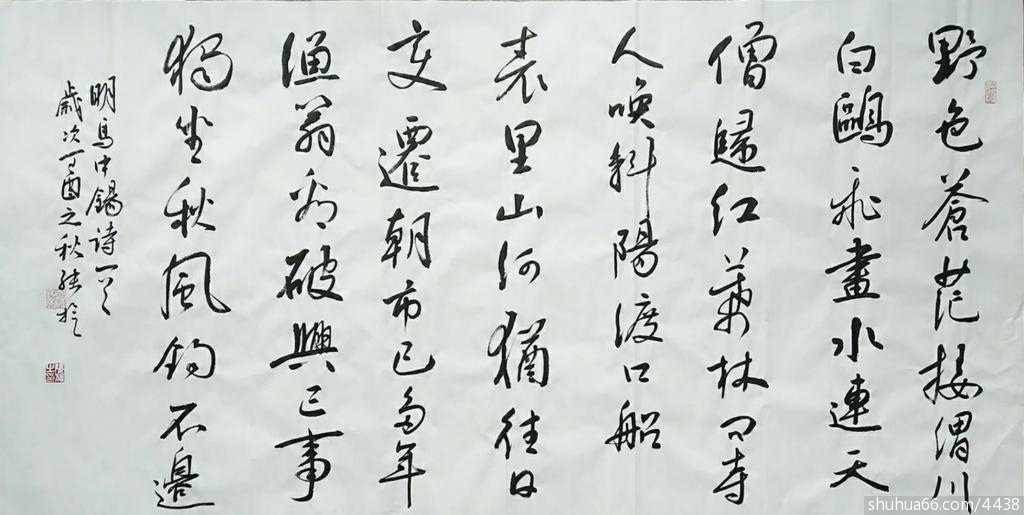 野色蒼茫接渭川
白鷗飛盡水連天
僧歸红葉林间寺
人喚斜陽渡口船
表里山河猶往日
变遷朝市已多年
漁翁看破興亡事
獨坐秋風钓石邊
明馬中錫诗一首
歲次丁酉之秋
shuhua66.com/4438